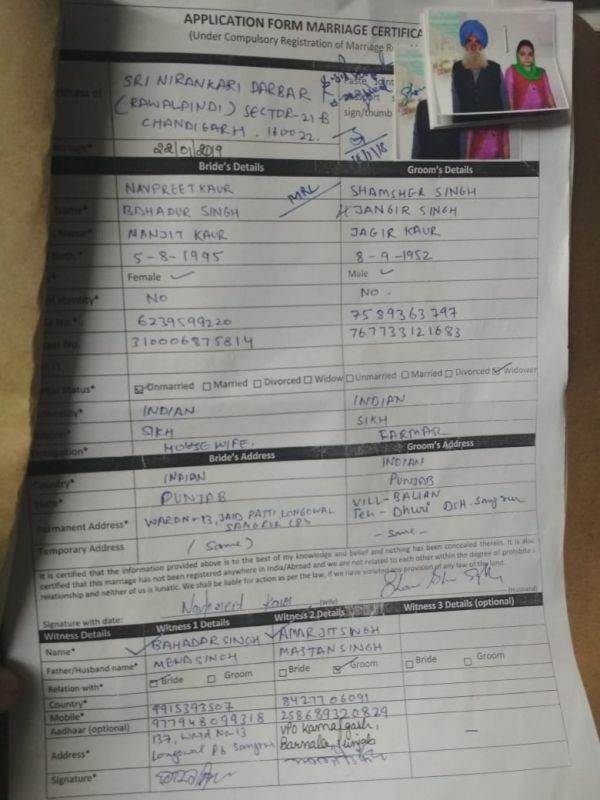 APPLICATION FORM MARRIAGE CERTIFICA
(Under Compulsory Registration of Marriage
SRI NIRANKARI DARBAR
(RAWALPINDI) SECTOR-21 B
CHANDIGARH. 160022.
Paste Joint
sign/thumb
22/01/2019
Bride's Details Groom's Details
NAVPREET KAUR SHAMSHER SINGH
Name* BAHADUR SINGH JANGIR SINGH
Name* MANJIT KAUR JAGIR KAUR
5-8-1995 8-9-1952
Female Male
Identity* NO NO.
No.* 6239599220 7589363797
No. 310006875814 767733121683
Status* Unmarried Married Divorced Widow Unmarried Married Divorced Widower
INDIAN INDIAN
SIKH SIKH
HOUSE WIFE. FARMAR
Bride's Address Groom's Address
Country* INDIAN INDIAN
State* PUNJAB PUNJAB
Permanent Address* WARDN-13, JAID PATTI, LONGOWAL VILL-BALIAN
SANGRUR Teh-Dhuri Distt. Sangrur
Temporary Address (Same) -Same-
It is certified that the information provided above is to the best of my knowledge and belief and nothing has been concealed therein. It is also
certified that this marriage has not been registered anywhere in India/Abroad and we are not related to each other within the degree of prohibited
relationship and neither of us is lunatic. We shall be liable for action as per the law, if we have violated any provision of any law of the land.
Signature with date: Navpreet Kaur (Wife) (Husband)
Witness Details Witness 1 Details Witness 2 Details Witness 3 Details (optional)
Name* BAHADAR SINGH AMARJIT SINGH
Father/Husband name* MENA SINGH MASTAN SINGH
Relation with* Bride Groom Bride Groom Bride Groom
Country*
Mobile* 9915393507 8427706091
Aadhaar (optional) 977948099318 258689320829
Address* 137, Ward No-13 VPO
Longowal Pb Sangrur Barnala, Punjab
Signature*